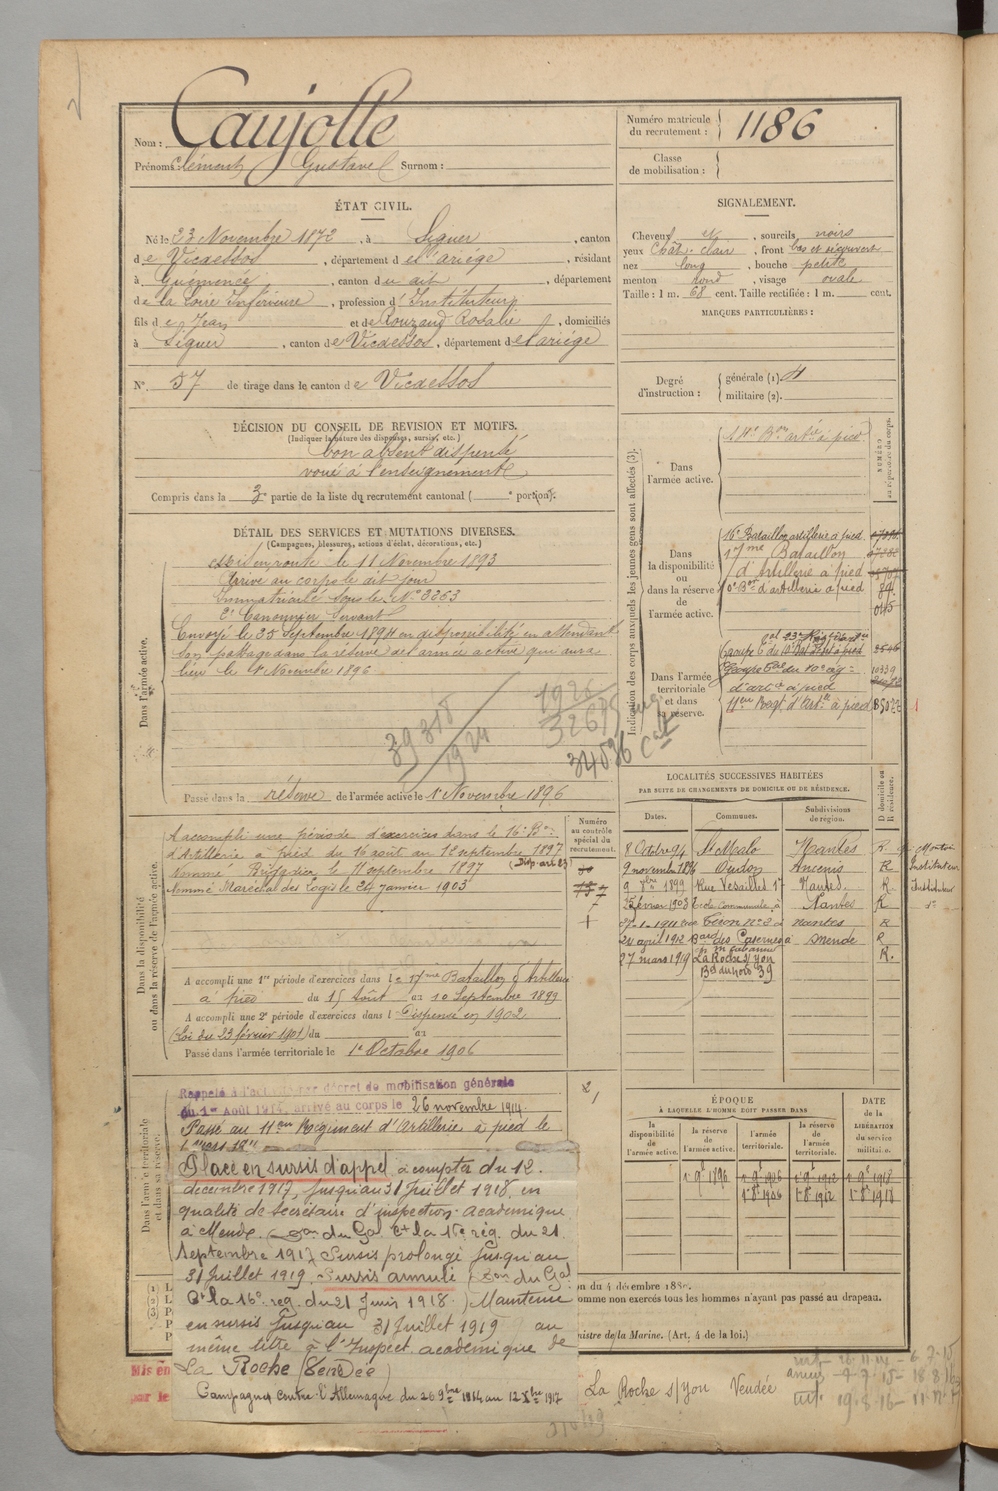 Nom : Caujolle
Prénoms : Clément Gustave Surnom :
Numéro matricule du recrutement : 1186
Classe de mobilisation :
ÉTAT CIVIL.
Né le 23 Novembre 1872, à Siguer, canton
de Vicdessos, département de l'ariége, résidant
à Guémenée, canton du dit, département
de la Loire Inférieure, profession d'Instituteur
fils de Jean et de Rouzaud Rosalie, domiciliés
à Siguer, canton de Vicdessos, département de l'ariége
N° 57 de tirage dans le canton de Vicdessos
SIGNALEMENT.
Cheveux et, sourcils noirs
yeux Chât. clair, front bas et découvert
nez long, bouche petite
menton rond, visage ovale
Taille : 1 m. 68 cent. Taille rectifiée : 1 m. cent.
MARQUES PARTICULIÈRES :
Degré d'instruction : générale (1) 4
militaire (2).
DÉCISION DU CONSEIL DE REVISION ET MOTIFS.
(Indiquer la nature des dispenses, sursis, etc.)
bon absent dispensé
voué à l'enseignement
Compris dans la 3e partie de la liste du recrutement cantonal ( e portion).
DÉTAIL DES SERVICES ET MUTATIONS DIVERSES.
(Campagnes, blessures, actions d'éclat, décorations, etc.)
Dans l'armée active.
mis en route le 11 Novembre 1893
Arrivé au corps le dit jour
Immatriculé sous le N° 3363
2e Canonnier Servant
Envoyé le 25 Septembre 1894 en disponibilité en attendant
son passage dans la réserve de l'armée active qui aura
lieu le 1er Novembre 1896
39318
1924
1926
32675
34596 Cat
Passé dans la réserve de l'armée active le 1er Novembre 1896
Indication des corps auxquels les jeunes gens sont affectés (3).
NUMÉRO
au répertoire du corps.
Dans l'armée active.
Bon artie à pied
Dans la disponibilité ou dans la réserve de l'armée active.
16e Bataillon artillerie à pied
17me Bataillon
d'artillerie à pied
Bon d'artillerie à pied
Dans l'armée territoriale et dans sa réserve.
Groupe
d'artie à pied
11eme Regt d'Artie à pied
LOCALITÉS SUCCESSIVES HABITÉES
PAR SUITE DE CHANGEMENTS DE DOMICILE OU DE RÉSIDENCE.
Dates. Communes. Subdivisions de région. D domicile ou R résidence.
8 Octobre 94 St Malo Nantes R
9 novembre 1896 Oudon Ancenis R Instituteur
9 8bre 1899 Rue Versailles Nantes R Instituteur
25 février 1903 Ecole Communale à Nantes R do
27-1-1911 rue no 3 à nantes R
24 avril 1912 Bard des Casernes à Mende R
27 mars 1919 La Roche s/yon R.
Bd du nord 39
Numéro au contrôle spécial du recrutement.
Dans la disponibilité ou dans la réserve de l'armée active.
A accompli une période d'exercices dans le 16e Bon
d'Artillerie à pied du 16 août au 12 septembre 1897
Nommé Brigadier le 11 septembre 1897
Nommé Maréchal des Logis le 24 janvier 1903
A accompli une 1re période d'exercices dans le 17me Bataillon d'Artillerie
à pied du 15 Août au 10 Septembre 1899
A accompli une 2e période d'exercices dans l Dispensé en 1902
(Loi du 23 février 1901) du au
Passé dans l'armée territoriale le 1er Octobre 1906
Dans l'armée territoriale et dans sa réserve.
Rappelé à l'activité par décret de mobilisation générale
du 1er Août 1914, arrivé au corps le 26 novembre 1914
Passé au 11eme Régiment d'Artillerie à pied le
Placé en sursis d'appel à compter du 12
décembre 1917, jusqu'au 31 Juillet 1918, en
qualité de secrétaire d'inspection académique
à Mende. (Don du Gal Ct la 16e rég. du 21
septembre 1917 Sursis prolongé jusqu'au
31 Juillet 1919. Sursis annulé (Don du Gal
Ct la 16e reg. du 21 Juin 1918.) Maintenu
en sursis jusqu'au 31 Juillet 1919 au
même titre à l'Inspect. académique de
La Roche (Vendée)
Campagnes contre l'Allemagne du 26 9bre 1914 au 12 Xbre 1917
ÉPOQUE
À LAQUELLE L'HOMME DOIT PASSER DANS
la disponibilité de l'armée active. la réserve de l'armée active. l'armée territoriale. la réserve de l'armée territoriale.
DATE de la LIBÉRATION du service militaire.
1er 9e 1896 1er 9e 1906 1er 9e 1912 1er 9e 1918
1er 8e 1906 1er 8e 1912 1er 8e 1918
on du 4 décembre 1889.
omme non exercés tous les hommes n'ayant pas passé au drapeau.
nistre de la Marine. (Art. 4 de la loi.)
Mis en
par le
La Roche s/yon Vendée